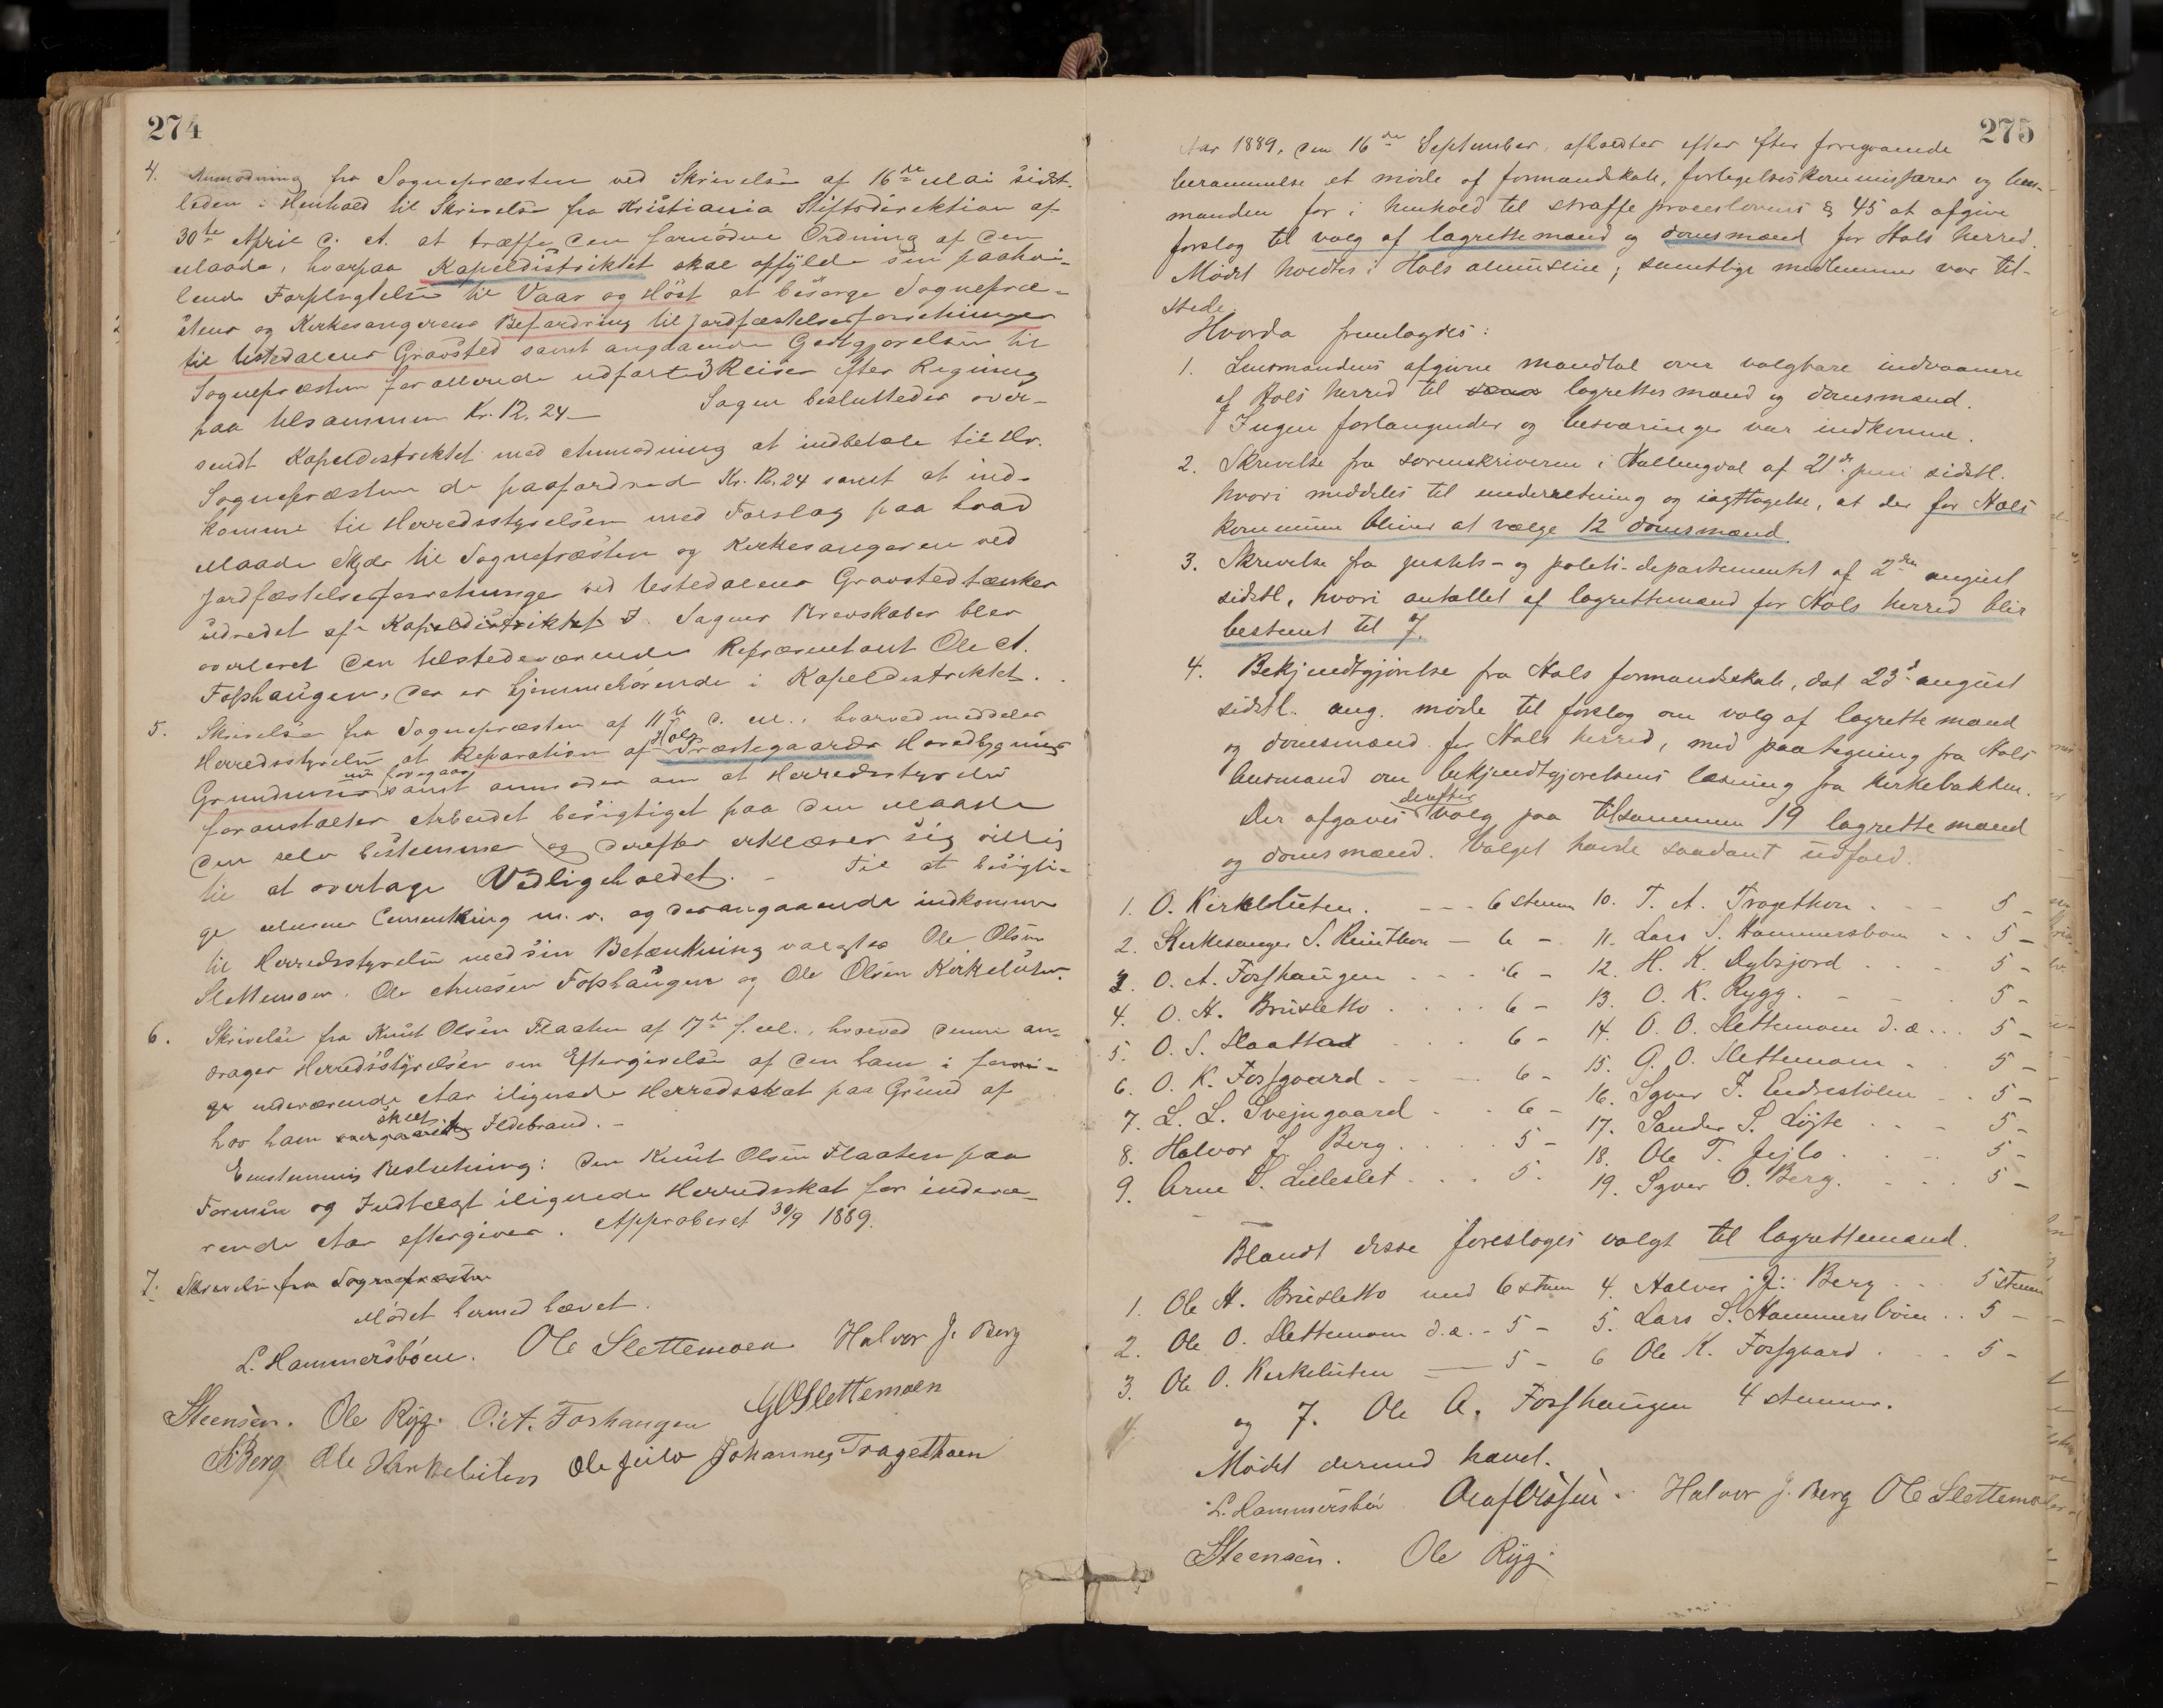 274
4. Anmodning fra Sognepræsten ved Skrivelse af 16de Mai sidst-
leden i Henhold til Skrivelse fra Kristiania Stiftsdirektion af
30te April d. A. at træffe den fornødne Ordning af den
Maade, hvorpaa Kapeldistriktet skal opfylde sin paahvi-
lende Forpligtelse til Vaar og Høst at besørge Sognepræ-
stens og Kirkesangerens Befordring til Jordfæstelsesforretninger
til Ustedalens Gravsted samt angaaende Godtgjørelsen til
Sognepræsten for allerede udførte 3 Reiser efter Regning
paa tilsammen Kr. 12.24 — Sagen besluttedes over-
sendt Kapeldistriktet med Anmodning at indbetale til Hr.
Sognepræsten de paafordrede Kr. 12.24 samt at ind-
komme til Herredsstyrelsen med Forslag paa hvad
Maade Skyds til Sognepræsten og Kirkesangeren ved
Jordfæstelsesforretninger ved Ustedalens Gravsted tænkes
udredet af Kapeldistriktet. Sagens Brevskaber blev
overleveret den tilstedeværende Repræsentant Ole A.
Foshaugen, der er hjemmehørende i Kapeldistriktet.
5. Skrivelse fra Sognepræsten af 11te d. M., hvorved meddeles
Herredsstyrelsen at Reparation af Hols Præstegaards Hovedbygnings
Grundmur nu foregaar samt anmoder om at Herredsstyrelsen
foranstalter Arbeidet besigtiget paa den Maade
den selv bestemmer og derefter erklærer sig villig
til at overtage Vedligeholdet. – Til at besigti-
ge Murens Cementering m. v. og derangaaende indkomme
til Herredsstyrelsen med sin Betænkning valgtes Ole Olsen
Slettemoen, Ole Arnesen Foshaugen og Ole Olsen Kirkeluten.
6. Skrivelse fra Knut Olsen Flaaten af 17de f. M., hvorved denne an-
drager Herredsstyrelsen om Eftergivelse af den ham i forri-
ge nuværende Aar ilignede Herredsskat paa Grund af
hos ham skeet Ildebrand. –
Enstemmig Beslutning: Den Knut Olsen Flaaten paa
Formue og Indtægt ilignede Herredsskat for indevæ-
rende Aar eftergives. Approberet 30/9 1889.
7. Skrivelse fra Sognepræsten
Mødet hermed hævet.
L. Hammersbøen. Ole Slettemoen Halvor J. Berg
Steensen. Ole Ryg. O. A. Foshaugen GOSlettemoen
SBerg Ole Kirkeluten Ole Jeilo Johannes Tragethaen
275
Aar 1889, den 16de September, afholdtes efter efter foregaaende
berammelse et møde af formandskab, forligelseskommissærer og lens-
manden for i henhold til straffeproceslovens § 45 at afgive
forslag til valg af lagrettemænd og domsmænd for Hols herred.
Mødet holdtes i Hols almustue; samtlige medlemmer var til-
stede.
Hvorda fremlagdes:
1. Lensmandens afgivne mandtal over valgbare indvaanere
af Hols herred til lagrettesmænd og domsmænd.
Ingen forlangender og besværinger var indkomne.
2. Skrivelse fra sorenskriveren i Hallingdal af 21de juni sidstl.
hvori meddeles til underretning og iagttagelse, at der for Hols
kommune bliver at vælge 12 domsmænd.
3. Skrivelse fra justits- og politi-departementet af 2den august
sidstl., hvori antallet af lagrettemænd for Hols herred blir
bestemt til 7.
4. Bekjendtgjørelse fra Hols formandskab, dat 23d august
sidstl. ang. møde til forslag om valg af lagrettemænd
og domsmænd for Hols herred, med paategning fra Hols
lensmand om bekjendtgjørelsens læsning fra kirkebakken.
Der afgaves derefter valg paa tilsammen 19 lagrettemænd
og domsmænd. Valget havde saadant udfald.
1. O. Kirkeluten. - - - 6 stemm 10. T. A. Tragethon . - - 5 -
2. Kirkesanger S. Reinthon — 6 - 11. Lars S. Hammersbøen - . 5 -
3. O. A. Forshaugen . . . 6 - 12. H. K. Dybsjord . . . 5 -
4. O. H. Brusletto . . . . 6 - 13. O. K. Rygg . - - . 5 -
5. O. S. Haattad . . . 6 - 14. O. O. Slettemoen d. æ. . . 5 -
6. O. K. Forsgaard . - - . 6 - 15. G. O. Slettemoen - . . 5 -
7. L. L. Svejngaard . . 6 - 16. Syver T. Endrestølen - . 5 -
8. Halvor J. Berg . . . . 5 - 17. Sander S. Løjte . . - 5 -
9. Arne S. Lilleslet . . . 5. 18. Ole T. Jejlo . . . . 5 -
19. Syver O. Berg. . . . . 5 -
Blandt disse foresloges valgt til lagrettemænd.
1. Ole H. Brusletto med 6 stem 4. Halvor J. Berg . . . 5 stemm
2. Ole O. Slettemoen d. æ. - 5 - 5. Lars S. Hammersbøen . . 5 -
3. Ole O. Kirkeluten — 5 - 6 Ole K. Forsgaard . . . 5 -
og 7. Ole A. Forshaugen 4 stemmer.
Mødet dermed hævet.
L. Hammersbøn Halvor J. Berg Ole Slettemoen
Steensen. Ole Ryg.